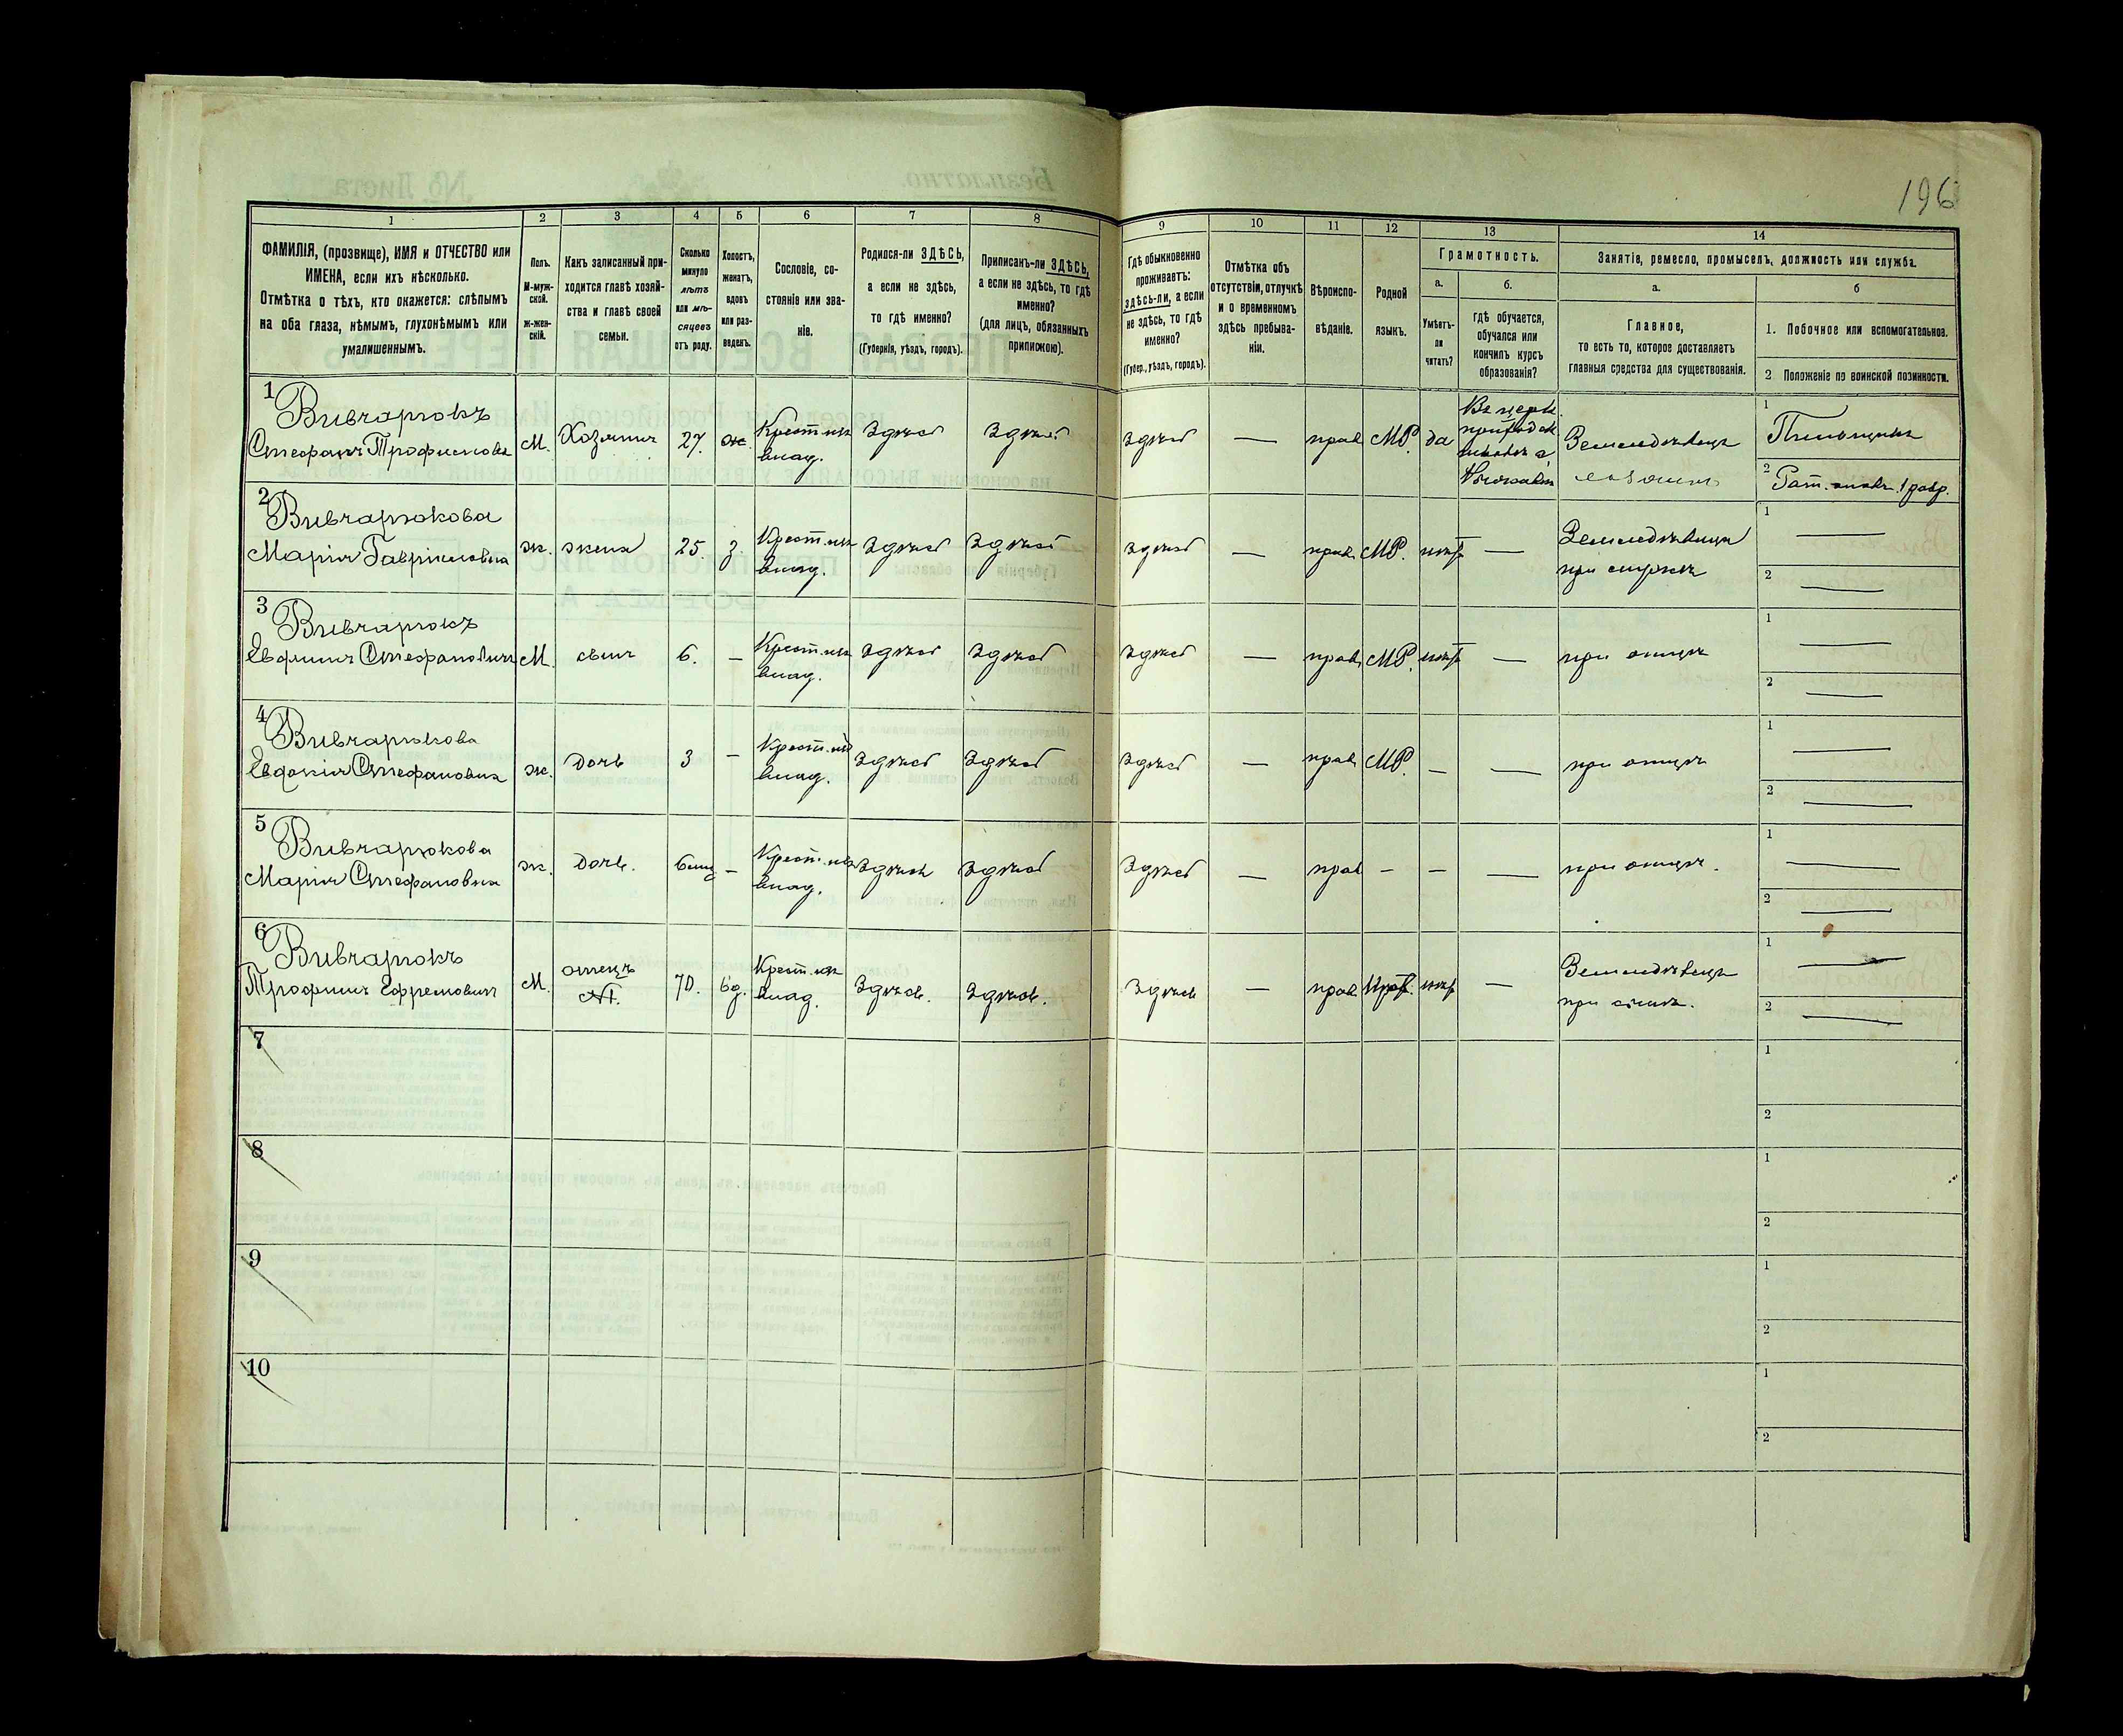 196
1 2 3 4 5 6 7 8 9 10 11 12 13 14
ФАМИЛІЯ, (прозвище), ИМЯ и ОТЧЕСТВО или
ИМЕНА, если ихъ нѣсколько.
Отмѣтка о тѣхъ, кто окажется: слѣпымъ
на оба глаза, нѣмымъ, глухонѣмымъ или
умалишеннымъ.
Полъ.
М-муж-
ской.
ж-жен-
скій.
Какъ записанный при-
ходится главѣ хозяй-
ства и главѣ своей
семьи.
Сколько
минуло
лѣтъ
или мѣ-
сяцевъ
отъ роду.
Холостъ,
женатъ,
вдовъ
или раз-
веденъ.
Сословіе, со-
стояніе или зва-
ніе.
Родился-ли ЗДѢСЬ,
а если не здѣсь,
то гдѣ именно?
(Губернія, уѣздъ, городъ).
Приписанъ-ли ЗДѢСЬ,
а если не здѣсь, то гдѣ
именно?
(для лицъ, обязанныхъ
припискою).
Гдѣ обыкновенно
проживаетъ:
здѣсь-ли, а если
не здѣсь, то гдѣ
именно?
(Губер., уѣздъ, городъ).
Отмѣтка объ
отсутствіи, отлучкѣ
и о временномъ
здѣсь пребыва-
ніи.
Вѣроиспо-
вѣданіе.
Родной
языкъ.
Грамотность.
а.
Умѣетъ-
ли
читать?
б.
гдѣ обучается,
обучался или
кончилъ курсъ
образованія?
Занятіе, ремесло, промыселъ, должность или служба.
а.
Главное,
то есть то, которое доставляетъ
главныя средства для существованія.
б
1. Побочное или вспомогательное.
2 Положеніе по воинской повинности.
1 Вивчарюкъ
Стефанъ Трофимовъ М. Хозяинъ 27. ж Крест. изъ
влад. Здѣсь Здѣсь Здѣсь — прав МР. да Въ церк.
приход. Земледѣлецъ
хозяинъ 1 Пильщикъ
2 Рат. 1 разр.
2 Вивчарюкова
Марія Гавріиловна ж. жена 25. з. Крест. изъ
влад. Здѣсь Здѣсь Здѣсь — прав. МР. нѣтъ — Земледѣлица
при мужѣ 1 —
2 —
3 Вивчарюкъ
Евфимъ Стефановичъ М. сынъ 6. — Крест. изъ
влад. Здѣсь Здѣсь Здѣсь — прав. МР. нѣтъ — при отцѣ 1 —
2 —
4 Вивчарюкова
Евдокія Стефановна ж. дочь 3 — Крест. изъ
влад. Здѣсь Здѣсь Здѣсь — прав МР. — — при отцѣ 1 —
2 —
5 Вивчарюкова
Марія Стефановна ж. дочь. 6 мц — Крест. изъ
влад. Здѣсь Здѣсь Здѣсь — прав — — — при отцѣ. 1 —
2 —
6 Вивчарюкъ
Трофимъ Ефремовичъ М. отецъ 70. вд. Крест. изъ
влад. Здѣсь. Здѣсь. Здѣсь — прав нѣтъ — Земледѣлецъ
при сынѣ. 1 —
2 —
7 1
2
8 1
2
9 1
2
10 1
2